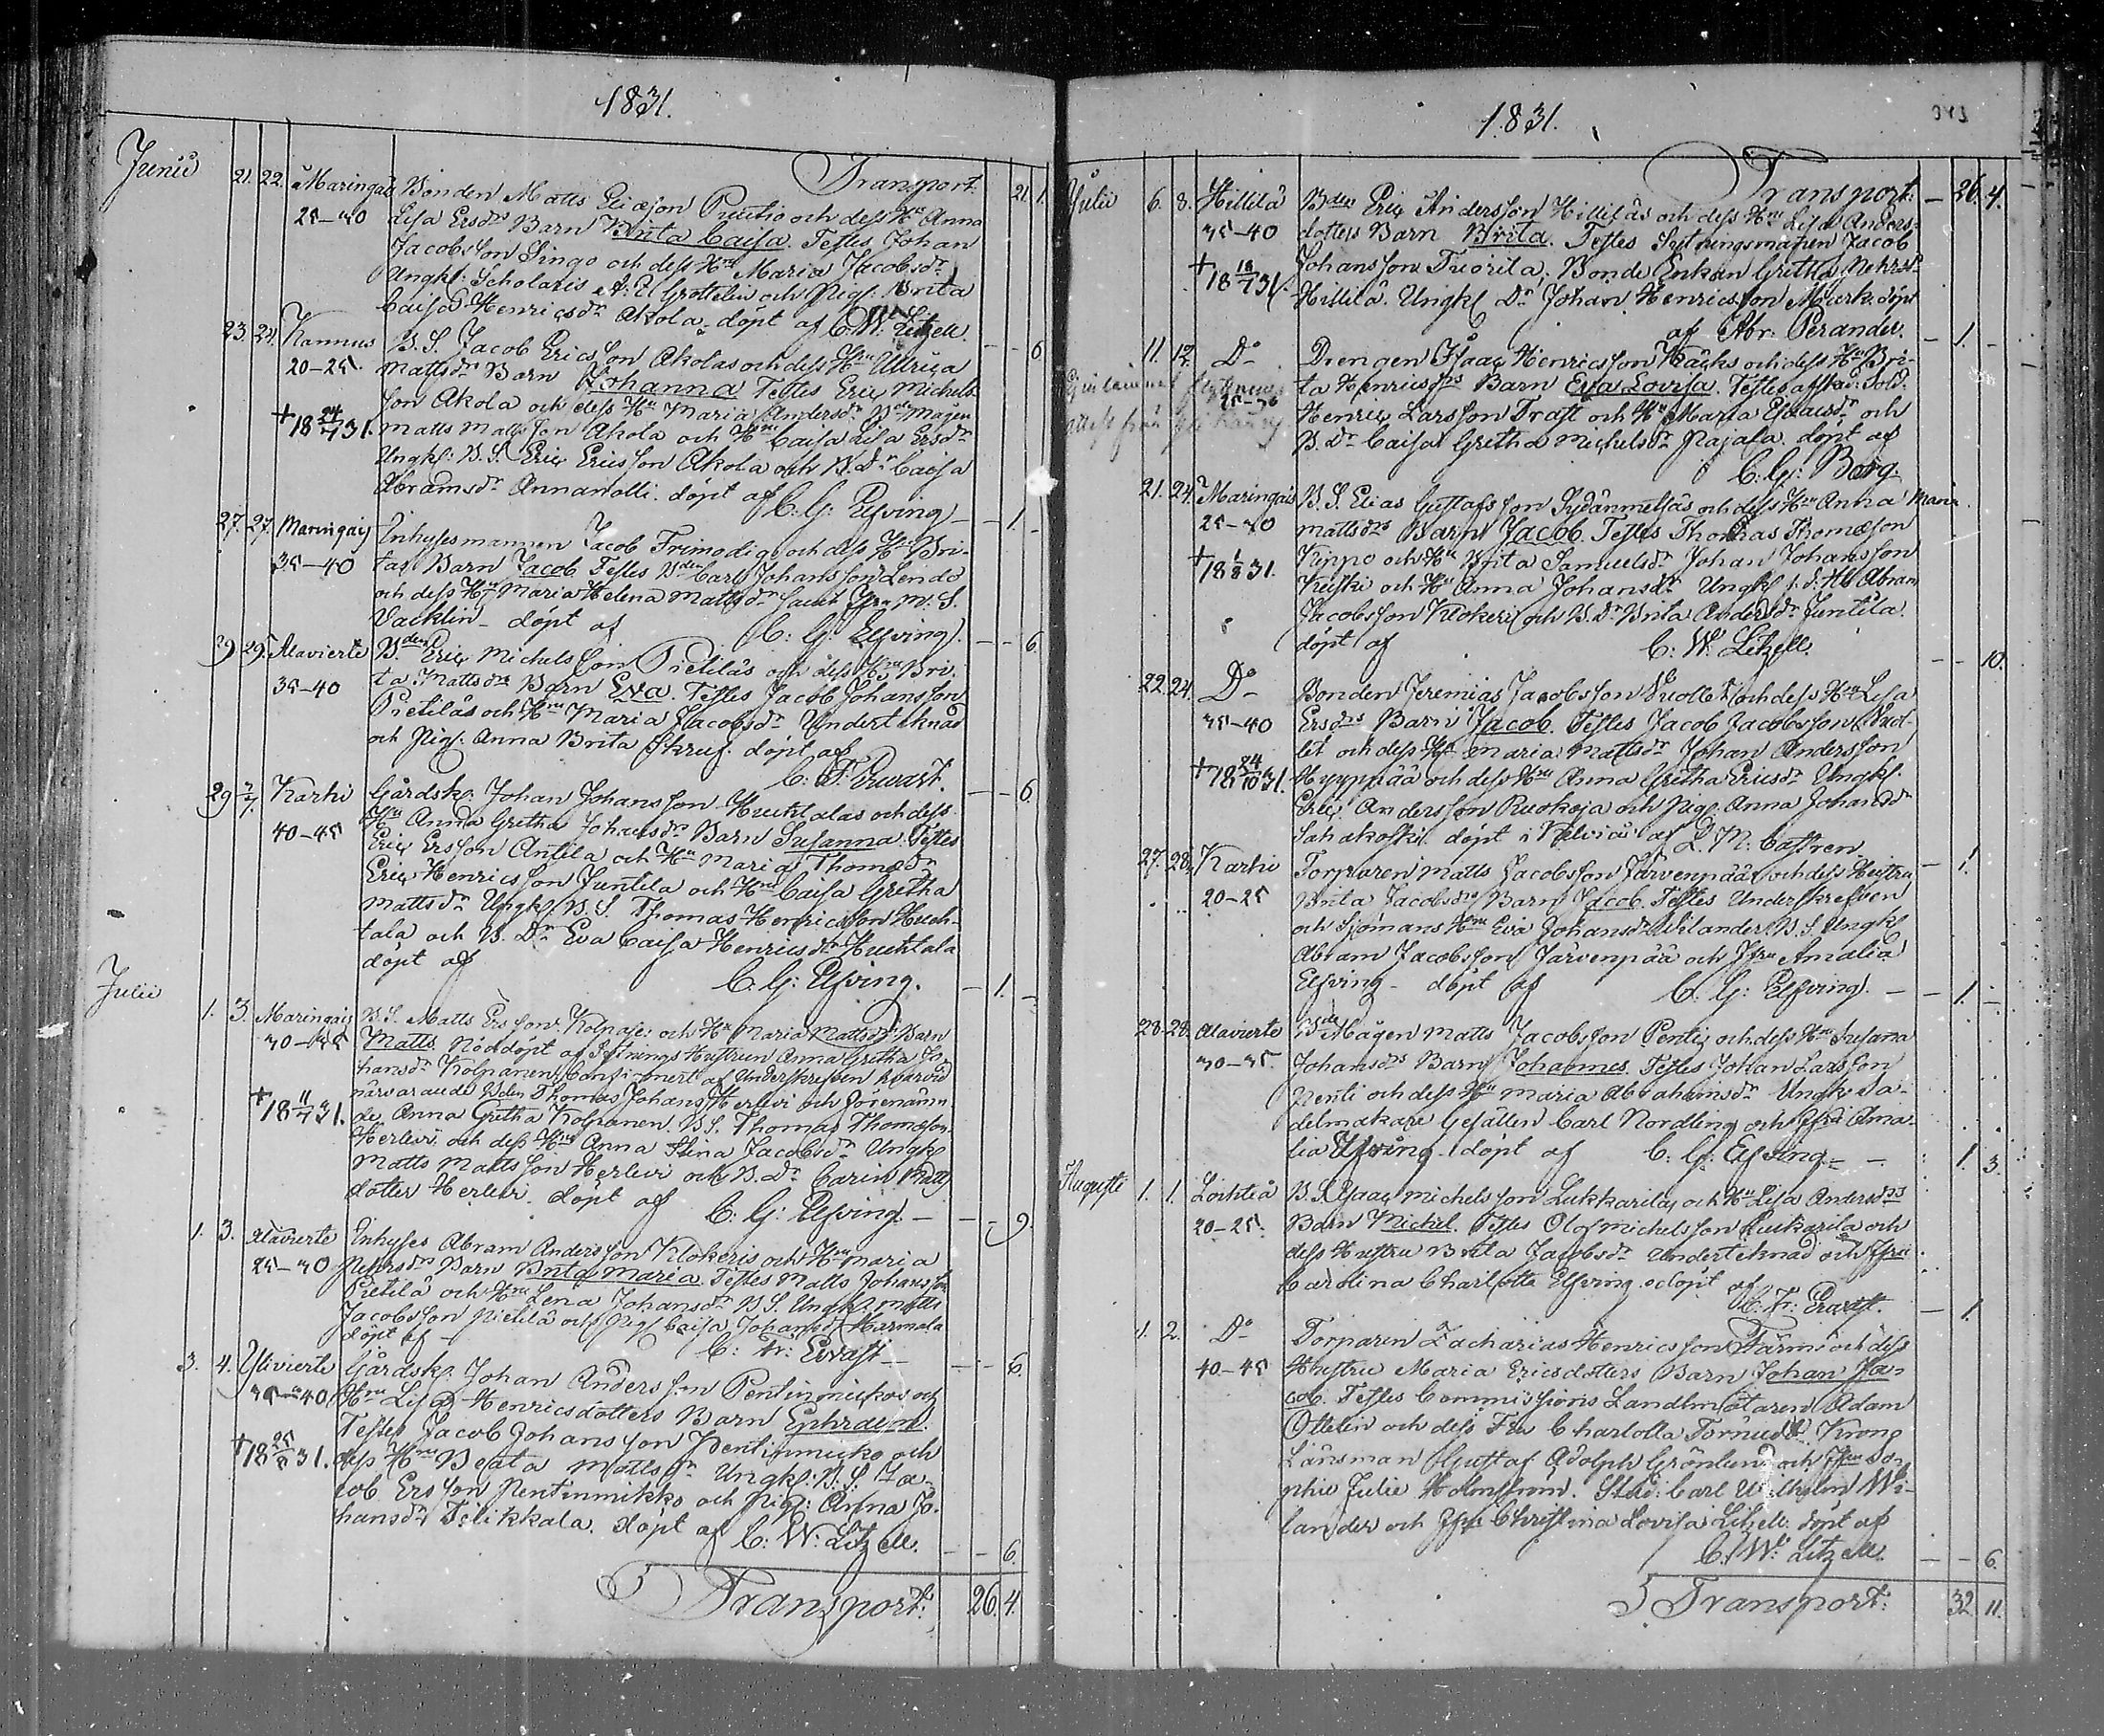 1831.
Transport: 21. 1.
Junii 21. 22. Maringais Bonden Matts Ericsson Puutio och dess Hu Anna
25–30 Lisa Ersdrs Barn Brita Caisa. Testes Johan
Jacobsson Lingo och dess Hru Maria Jacobsdr
Ungkl: Scholaris A: U Grottelin och Pig: Brita
Caisa Henricsdr Akola. döpt af C. W: Litzell. – – 6
23. 24. Kannus B. S. Jacob Ericsson Akolas och dess Hu Ullrica
20–25 Mattsdrs Barn Johanna Testes Eric Michels-
son Akola och dess Hu Maria Andersdr Bde Mågen
+18 24/7 31. Matts Mattsson Akola och Hru Caisa Lisa Ersdr
Ungkl: B. S. Eric Ericsson Akola och B. Dr Caisa
Abramsdr Annanolli. döpt af C: G: Elfving – – 1. –
27. 27. Maringais Inhysesmannen Jacob Frimodigs och dess Hu Bri-
35–40 tas Barn Jacob Testes Bden Carl Johansson Lindo
och dess Hu Maria Helena Mattsdr samt Jfru M: S.
Vacklin – döpt af C: G: Elfving). – – 6.
29. 29. Alavierte Bden Eric Michelsson Pietiläs och dess Hru Bri-
35–40 ta Mattsdrs Barn Eva. Testes Jacob Johansson
Pietiläs och Hru Maria Jacobsdr Undertiknad
och Pig: Anna Brita Skruf. döpt af
C: F: Ervast. – – 6.
29 3/7. Karhi Gårdsk: Johan Johansson Huchtalas och dess
40–45 Hu Anna Gretha Johansdrs Barn Susanna Testes
Eric Ersson Antila och Hu Maria Thomædr
Eric Henricsson Juntila och Hru Caisa Gretha
Mattsdr Ungkl: B. S. Thomas Henricsson Huch-
tala och B. Dr Eva Caisa Henricsdr Huchtala
döpt af C. G: Elfving. – 1. –
Julii
1. 3. Maringais B. S. Matts Ersson Kolpases och Hu Maria Mattsdrs Barn
30–35 Matts Nöddöpt af Sytnings Hustrun Anna Gretha Jo-
hansdr Kolpanen, Confirmert af Underskrefven hvarvid
närvarande Bden Thomas Johans: Herlevi och förenämn
+18 11/7 31. de Anna Gretha Kolpanen. B. S. Thomas Thomæson
Herlevi och dess Hru Anna Stina Jacobsdr Ungkl:
Matts Mattsson Herlevi och B. Dr Carin Matts
dotter Herlevi. döpt af C: G: Elfving. – – – 9.
1. 3. Alavierte Inhyses Abram Andersson Klokeris och Hru Maria
25–30 Pehrsdrs Barn Brita Maria. Testes Matts Johansson
Pietilä och Hru Lena Johansdr B S. Ungkl: Matts
Jacobsson Pietilä och Pig: Caisa Johansdr Harmala
döpt af C: Fr: Ervast – – – 6
3. 4. Ylivierte Gårdsk: Johan Andersson Pentinmickos och
35–40 Hru Lisa Henricsdotters Barn Ephraim.
Testes Jacob Johansson Pentinmicko och
+18 25/8 31. dess Hru Beata Mattsdr Ungkl: B: S. Ja-
cob Ersson Pentinmikko och Pig: Anna Jo-
hansdr Tilikkala. döpt af C: W: Litzell. – – 6.
Transport: 26. 4.
1831.
343
Transport: – 26. 4.
Julii 6. 8. Hillilä Bden Eric Andersson Hilliläs och dess Hru Lisa Anders-
35–40 dotters Barn Brita. Testes Sytningsmannen Jacob
+18 18/7 31. Johansson Tuorila, Bonde Enkan Gretha Pehrsdr
Hillilä. Ungkl Dr Johan Henricsson Murk. döpt
af Abr: Perander. – 1. –
11. 12. Do Drengen Isaac Henricsson Kacks och dess Hu Bri-
25–30 ta Henricsdrs Barn Eva Lovisa. Testes afsked: Sold.
Henric Larsson Traft och Hu Maria Eliaedr och
B. Dr Caisa Gretha Michelsdr Pajala. döpt af
C. G: Borg.
21. 24. Maringais B. S. Elias Gustafsson Sydänmetsäs och dess Hu Anna Maria
25–30 Mattsdrs Barn Jacob. Testes Thomas Thomæson
+18 1/8 31. Kippo och Hu Brita Samuelsdr Johan Johansson
Kestki och Hu Anna Johansdr Ungkl: Abram
Jacobsson Klokeri och B. Dr Brita Andersdr Juntila
döpt af C. W: Litzell. – – 10.
22. 24. Do Bonden Jeremias Jacobsson Vuollet och dess Hru Lisa
35–40 Ersdrs Barn Jacob. Testes Jacob Jacobsson Vuol-
let och dess Hu Maria Mattsdr Johan Andersson
+18 24/10 31. Hyyppää och dess Hru Anna Gretha Ericsdr Ungkl:
Eric Andersson Ruokoja och Pig: Anna Johansdr
Sahakoski. döpt i Kelviå af L. M: Castren – 1.
27. 28. Karhi Torparen Matts Jacobsson Järvenpääs och dess Hustru
20–25 Brita Jacobsdrs Barn Jacob. Testes Underskrefven
och Sjömans Hru Eva Johansdr Wilander B. S. Ungkl
Abram Jacobsson Järvenpää och Jfru Amalia
Elfving – döpt af C. G: Elfving. – – 1. –
28. 28. Alavierte Bde Mågen Matts Jacobsson Pentis och dess Hru Susana
30–35 Johansdrs Barn Johannes. Testes Johan Larsson
Penti och dess Hu Maria Abrahamsdr Ungk: Sa-
delmakare Gesällen Carl Nordling och Jfru Ama-
lia Elfving. döpt af C. G: Elfving – – 1. 3.
Augusti 1. 1. Lochteå B. S. Isaac Michelsson Lukkarilas och Hu Lisa Andersdrs
20–25. Barn Michel. Testes Olof Michelsson Luckarila och
dess Hustru Brita Jacobsdr Undertiknad och Jfru
Carolina Charlotta Elfving. döpt af
C. Fr: Ervast. – 1.
1. 2. Do Torparen Zacharias Henricsson Färm och dess
40–45 Hustru Maria Ericsdotters Barn Johan Ja-
cob. Testes Commissions Landtmätaren Adam
Ottelin och dess Fru Charlotta Törnudd, Krono
Länsman Gustaf Adolph Grönlund och Jfru So-
phie Julie Holmström. Stud: Carl Wilhelm Wi-
lander och Jfru Christina Lovisa Litzell. döpt af
C. W: Litzell. – – 6.
Transport: 32 11.